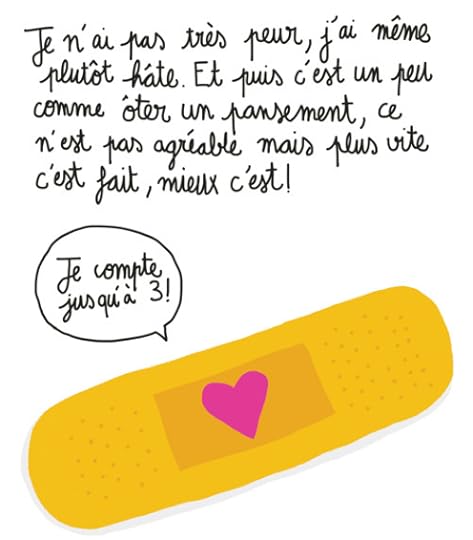 Je n'ai pas très peur, j'ai même
plutôt hâte. Et puis c'est un peu
comme ôter un pansement, ce
n'est pas agréable mais plus vite
c'est fait, mieux c'est!
Je compte
jusqu'à 3!